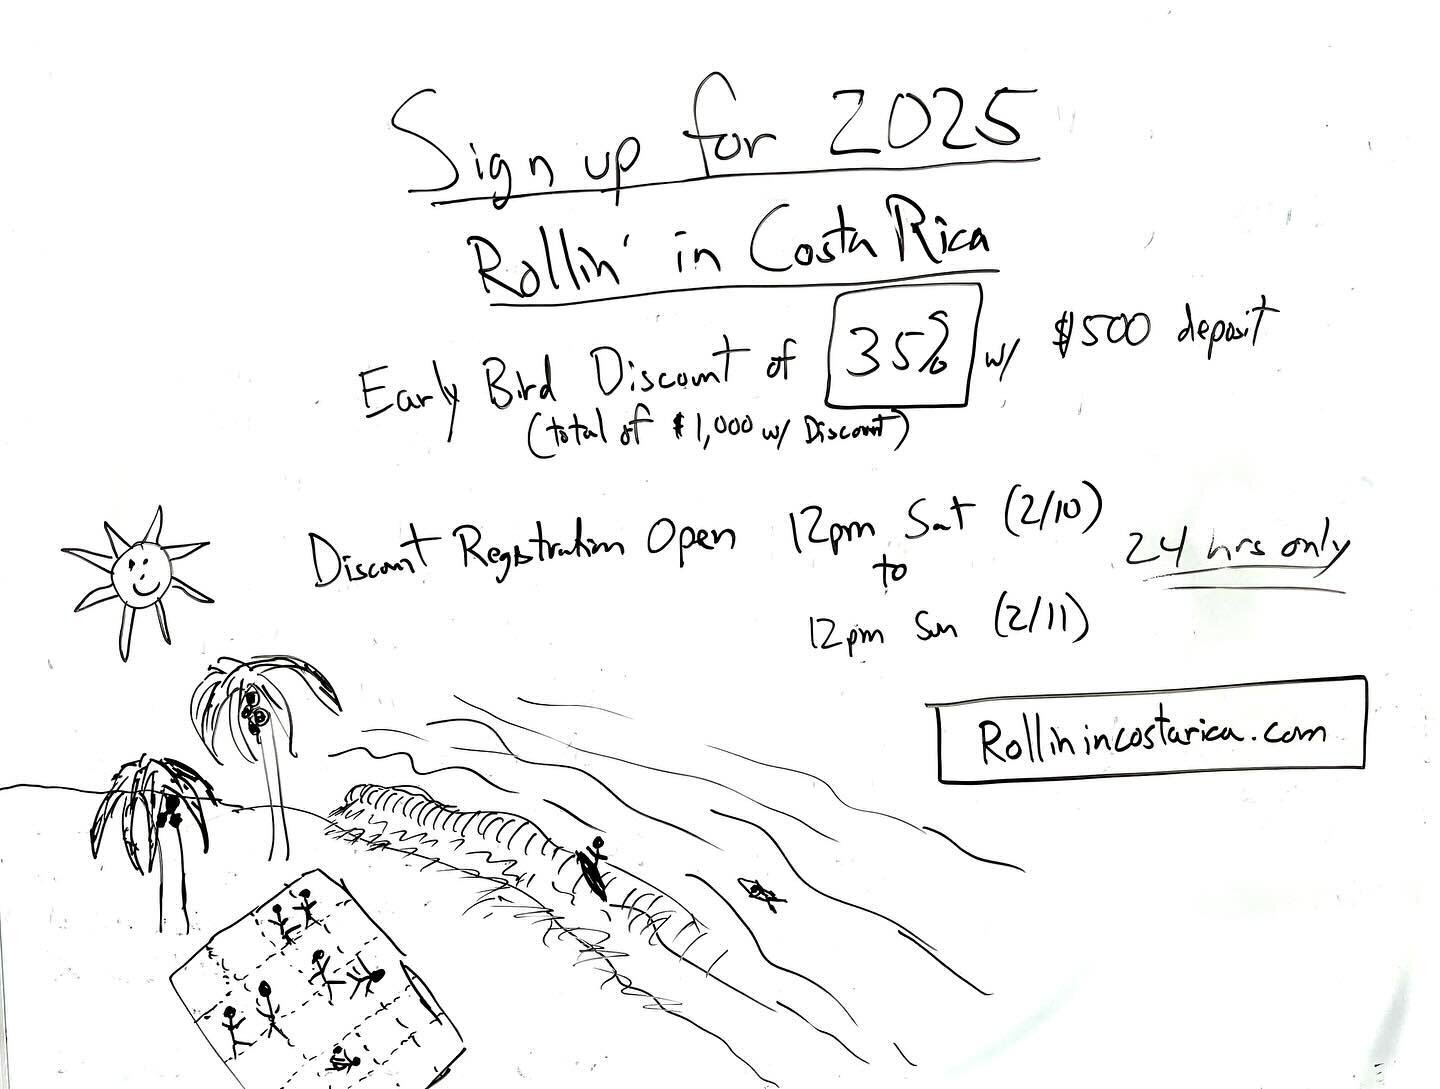 Sign up for 2025
Rollin' in Costa Rica
Early Bird Discount of 35% w/ $500 deposit
(total of $1,000 w/ Discount)
Discount Registration Open 12pm Sat (2/10)
to
12pm Sun (2/11)
24 hrs only
Rollinincostarica.com